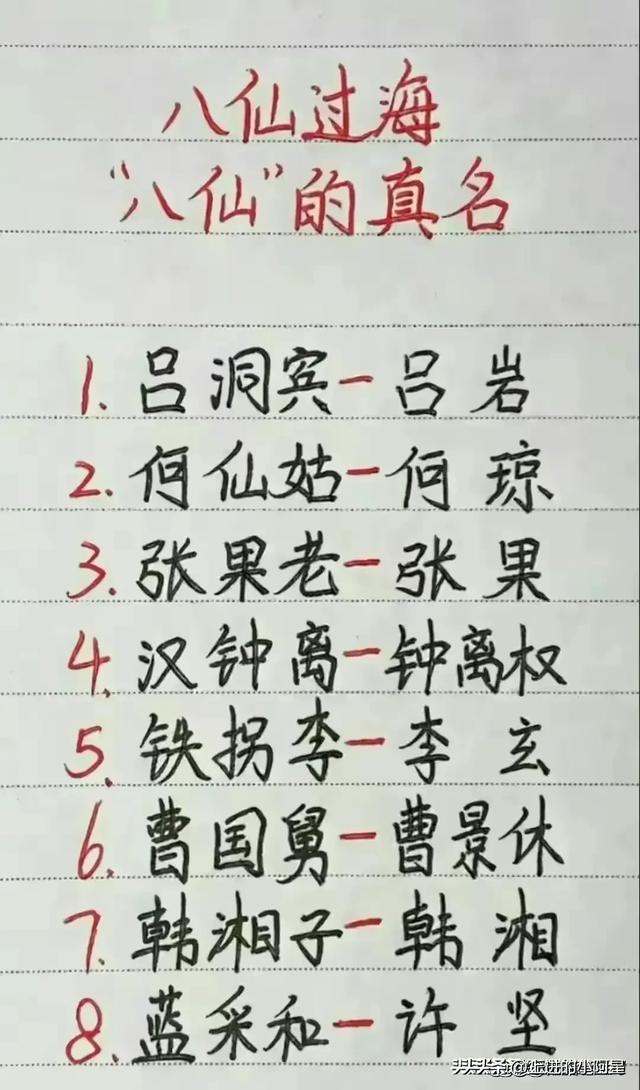 八仙过海
“八仙”的真名
1. 吕洞宾－吕岩
2. 何仙姑－何琼
3. 张果老－张果
4. 汉钟离－钟离权
5. 铁拐李－李玄
6. 曹国舅－曹景休
7. 韩湘子－韩湘
8. 蓝采和－许坚